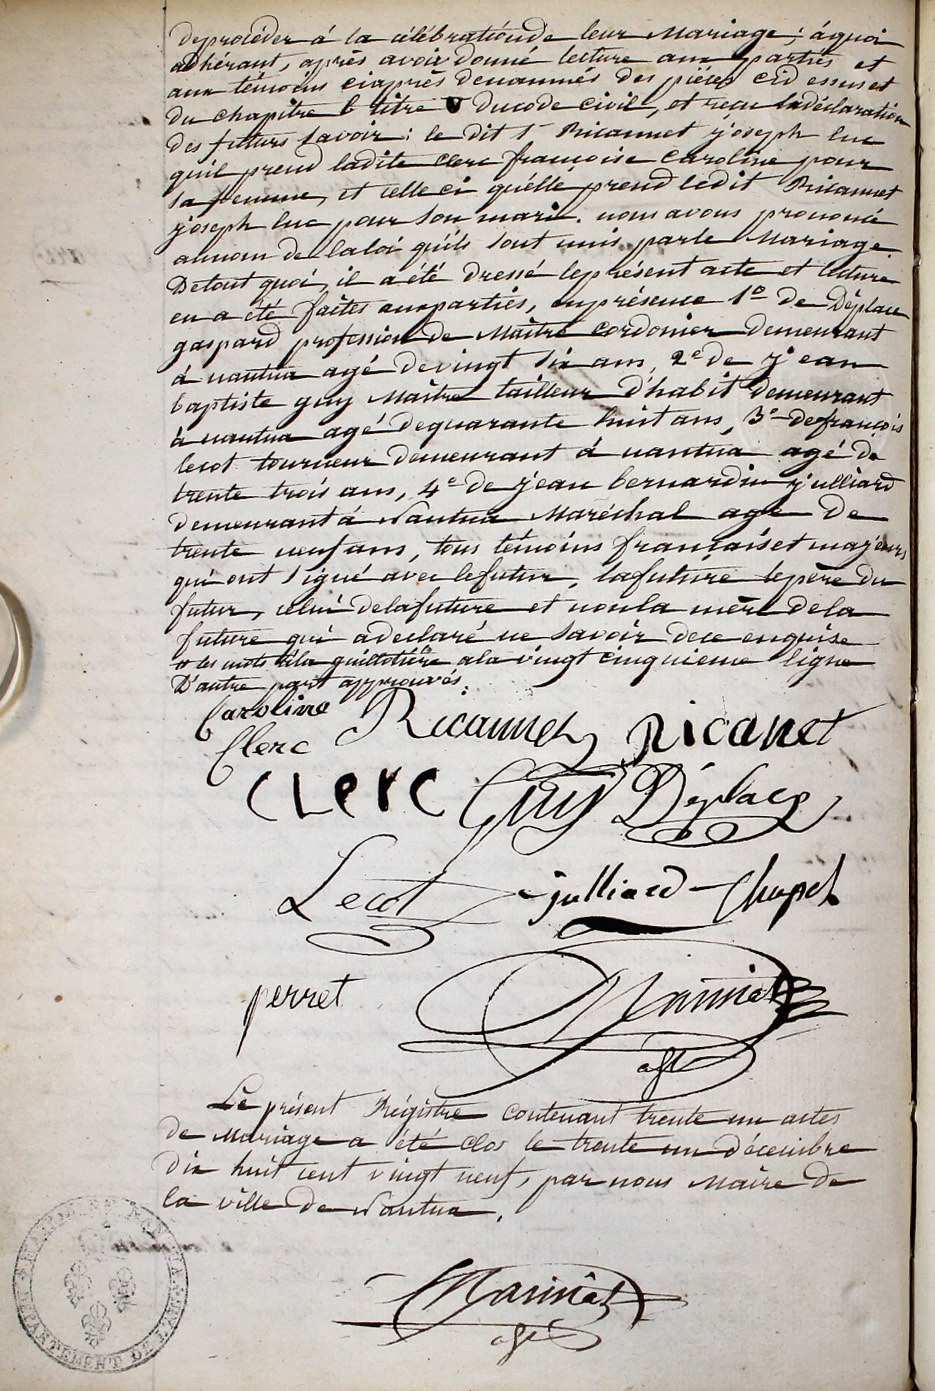 deprocéder á la célébrationde leur Mariage; áquoi
adhérant, après avoir donné lecture aux partiés et
aux témoins ciaprès denommés des piéces cid essus et
du chapitre 6 titre V ducode civil, et reçu ladéclaration
des futurs savoir: le dit Sr Ricannet joseph luc
quil prend ladite clerc françoise caroline pour
sa femme, et celle ci quélle prend ledit Ricannet
joseph luc pour son mari. nous avons prononcé
aunom de laloi quils sont unis parle Mariage
Detout quoi, il a été dressé leprésent acte et lecture
en a été faites auxpartiés, enprésence 1o de Déplace
gaspard profession de Maître cordonier demeurant
á nantua agé devingt six ans, 2e de jean
baptiste guy Maître tailleur d'habit demeurant
á nantua agé dequarante huit ans, 3e defrançois
lecot tourneur demeurant á nantua agé de
trente trois ans, 4e de jean bernardin julliard
demeurantá Nantua Maréchal agé de
trente neuf ans, tous témoins françaiset majeurs
qui ont signé avec lefutur, lafuture lepère du
futur, celui delafuture et nonla mère dela
future qui adeclaré ne savoir dece enquise
les mots à la guillotière ala vingt cinquieme ligne
D'autre part approuvés.
Caroline Ricannet Ricanet
Clerc
CLerc Guy Déplace
Lecot julliard Chapel
perret Marinet
adjt
Le présent Régistre contenant trente un actes
de Mariage a été clos le trente un décembre
dix huit cent vingt neuf, par nous Maire de
la ville de Nantua.
Marinet
adjt
DÉPARTEMENT DE L'AIN